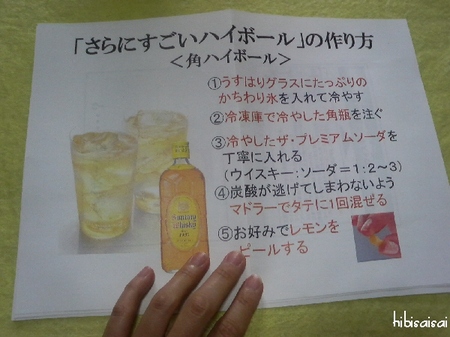 「さらにすごいハイボール」の作り方
＜角ハイボール＞
①うすはりグラスにたっぷりの
かちわり氷を入れて冷やす
②冷凍庫で冷やした角瓶を注ぐ
③冷やしたザ・プレミアムソーダを
丁寧に入れる
(ウイスキー:ソーダ=1:2～3)
④炭酸が逃げてしまわないよう
マドラーでタテに1回混ぜる
⑤お好みでレモンを
ピールする
Suntory
Whisky
hibisaisai